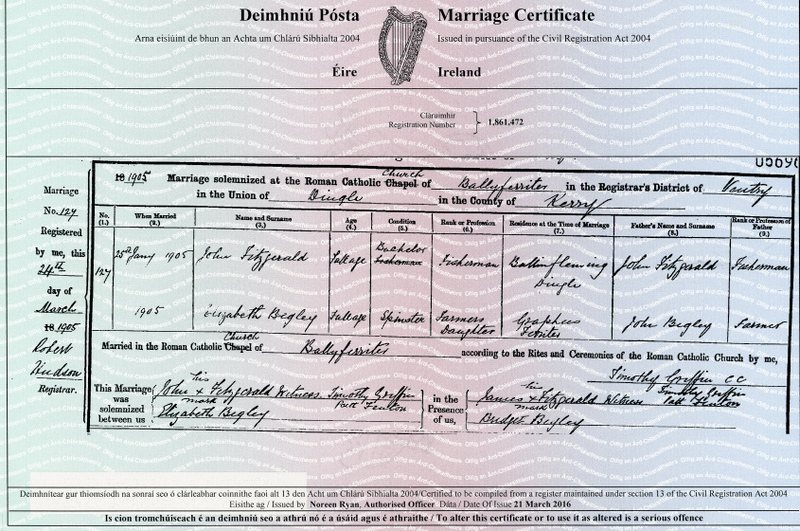 Deimhniú Pósta Marriage Certificate
Arna eisiúint de bhun an Achta um Chlárú Sibhialta 2004 Issued in pursuance of the Civil Registration Act 2004
Éire Ireland
Claraimhir
Registration Number 1,861,472
1905 Marriage solemnized at the Roman Catholic Church Chapel of Ballyferriter in the Registrar's District of Ventry
in the Union of Dingle in the County of Kerry
Marriage
No. 127
Registered
by me, this
24th
day of
March
18 1905
Robert
Hudson
Registrar.
No. (1.) When Married (2.) Name and Surname (3.) Age (4.) Condition (5.) Rank or Profession (6.) Residence at the Time of Marriage (7.) Father's Name and Surname (8.) Rank or Profession of Father (9.)
127 25th Jany 1905 John Fitzgerald Full age Bachelor Fisherman Dingle John Fitzgerald Fisherman
1905 Elizabeth Begley Full age Spinster Farmers Daughter John Begley Farmer
Married in the Roman Catholic Church Chapel of Ballyferriter according to the Rites and Ceremonies of the Roman Catholic Church by me,
Timothy Griffin C C
This Marriage was solemnized between us John his x mark Fitzgerald Witness Timothy Griffin Patt Fenton
Elizabeth Begley
in the Presence of us, James his x mark Fitzgerald Witness Timothy Griffin Patt Fenton
Bridget Begley
Deimhnítear gur thiomsíodh na sonraí seo ó chláirleabhar coinnithe faoi alt 13 den Acht um Chlárú Sibhialta 2004/Certified to be compiled from a register maintained under section 13 of the Civil Registration Act 2004
Eisithe ag / Issued by Noreen Ryan, Authorised Officer Dáta / Date Of Issue 21 March 2016
Is cion tromchúiseach é an deimhniú seo a athrú nó é a úsáid agus é athraithe / To alter this certificate or to use it as altered is a serious offence